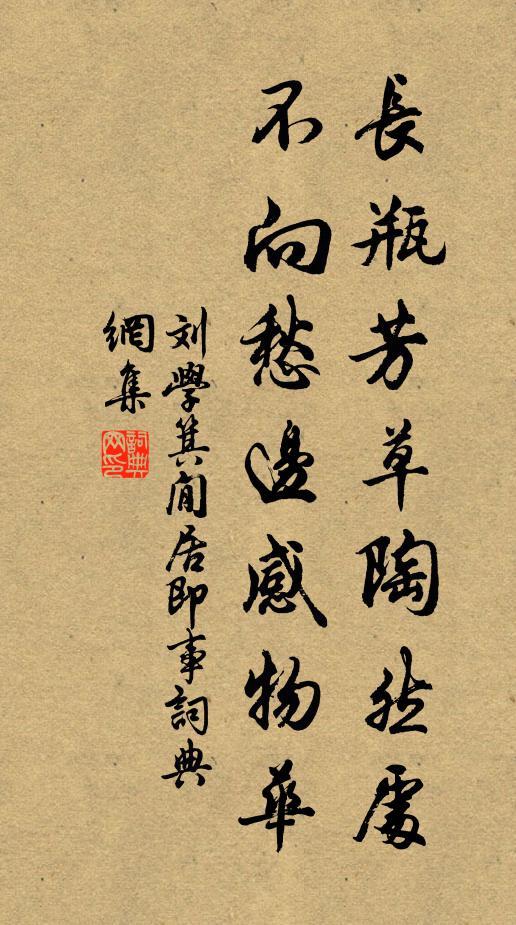 長瓶芳草陶然處
不向愁邊感物華
刘學箕閒居即事詞典
網集
詞典网印